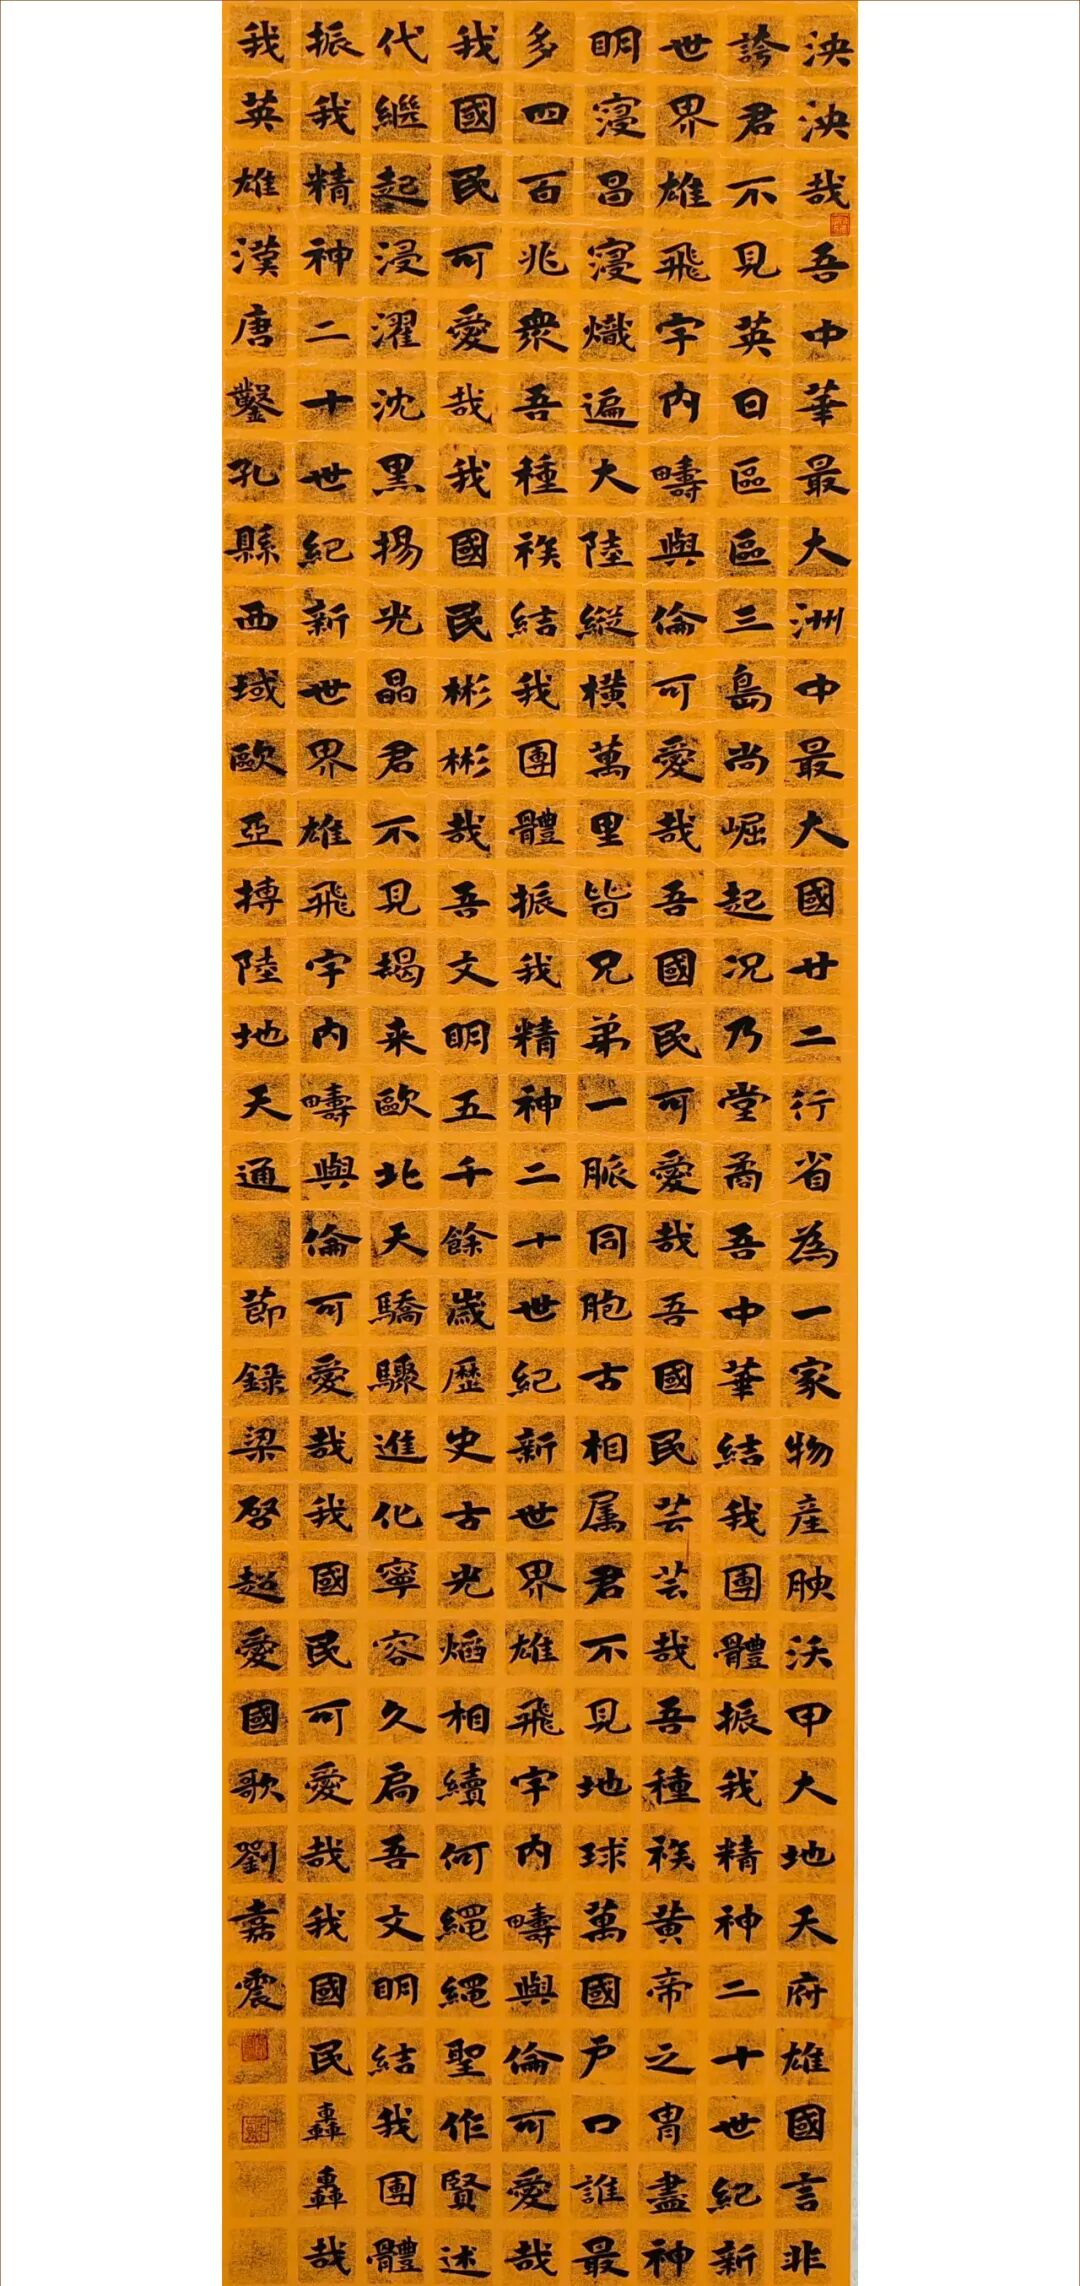 泱泱哉吾中華最大洲中最大國廿二行省為一家物産腴沃甲大地天府雄國言非
誇君不見英日區區三島尚崛起況乃堂矞吾中華結我團體振我精神二十世紀新
世界雄飛宇内疇與倫可愛哉吾國民可愛哉吾國民芸芸哉吾種族黄帝之胄盡神
明寖昌寖熾遍大陸縱橫萬里皆兄弟一脈同胞古相属君不見地球萬國户口誰最
多四百兆衆吾種族結我團體振我精神二十世紀新世界雄飛宇内疇與倫可愛哉
我國民可愛哉我國民彬彬哉吾文明五千餘歲歷史古光焰相續何繩繩聖作賢述
代繼起浸濯沈黑揚光晶君不見朅来歐北天驕驟進化寧容久扃吾文明結我團體
振我精神二十世紀新世界雄飛宇内疇與倫可愛哉我國民可愛哉我國民轟轟哉
我英雄漢唐鑿孔縣西域歐亞摶陸地天通 節録梁啓超愛國歌劉嘉震